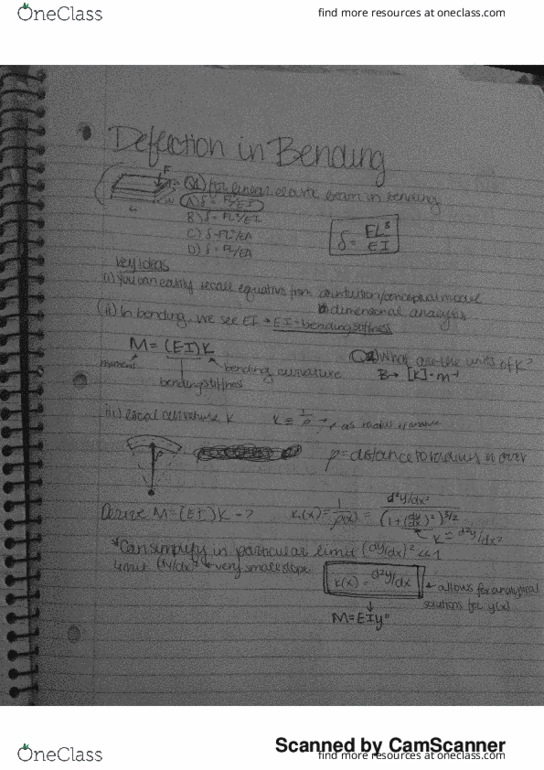 OneClass
find more resources at oneclass.com
Deflection in Bending
F
L
Q1) for linear elastic beam in bending
A) δ = FL³/EI
B) δ=FL²/EI
C) δ=FL³/EA
D) δ=FL/EA
δ = FL³/EI
key ideas
(i) you can easily recall equations from intuition/conceptual model
dimensional analysis
(ii) In bending, we see EI → EI = bending stiffness
M = (EI)K
moment
bending curvature
bending stiffness
Q2) What are the units of K?
B → [K] = m⁻¹
iii) local curvature K
K = 1/ρ → ρ as radius
ρ = distance to radius
Derive M = (EI)K →
K(x) = 1/ρ(x) = d²y/dx² / (1+(dy/dx)²)^3/2
K = d²y/dx²
*Can simplify in particular limit (dy/dx)² << 1
limit (dy/dx)² → very small slope
K(x) = d²y/dx
← allows for analytical
solutions for y(x)
M = EIy"
Scanned by CamScanner
OneClass
find more resources at oneclass.com